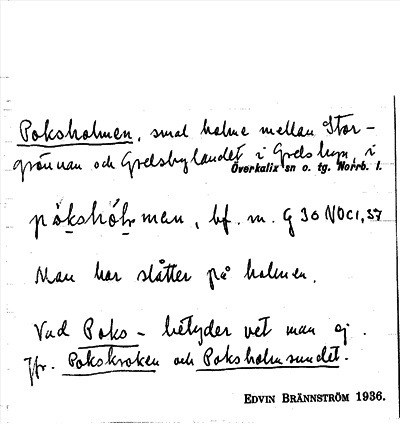 Poksholmen, smal holme mellan Stor-
grönnan och Grelsbylandet i Grelsbyn, i
Överkalix sn o. tg. Norrb. l.
pókshólman, bf. m. G 30 NOC1,37
Man har slåtter på holmen.
Vad Poks- betyder vet man ej.
Jfr. Pokskroken och Poksholmsundet.
EDVIN BRÄNNSTRÖM 1936.